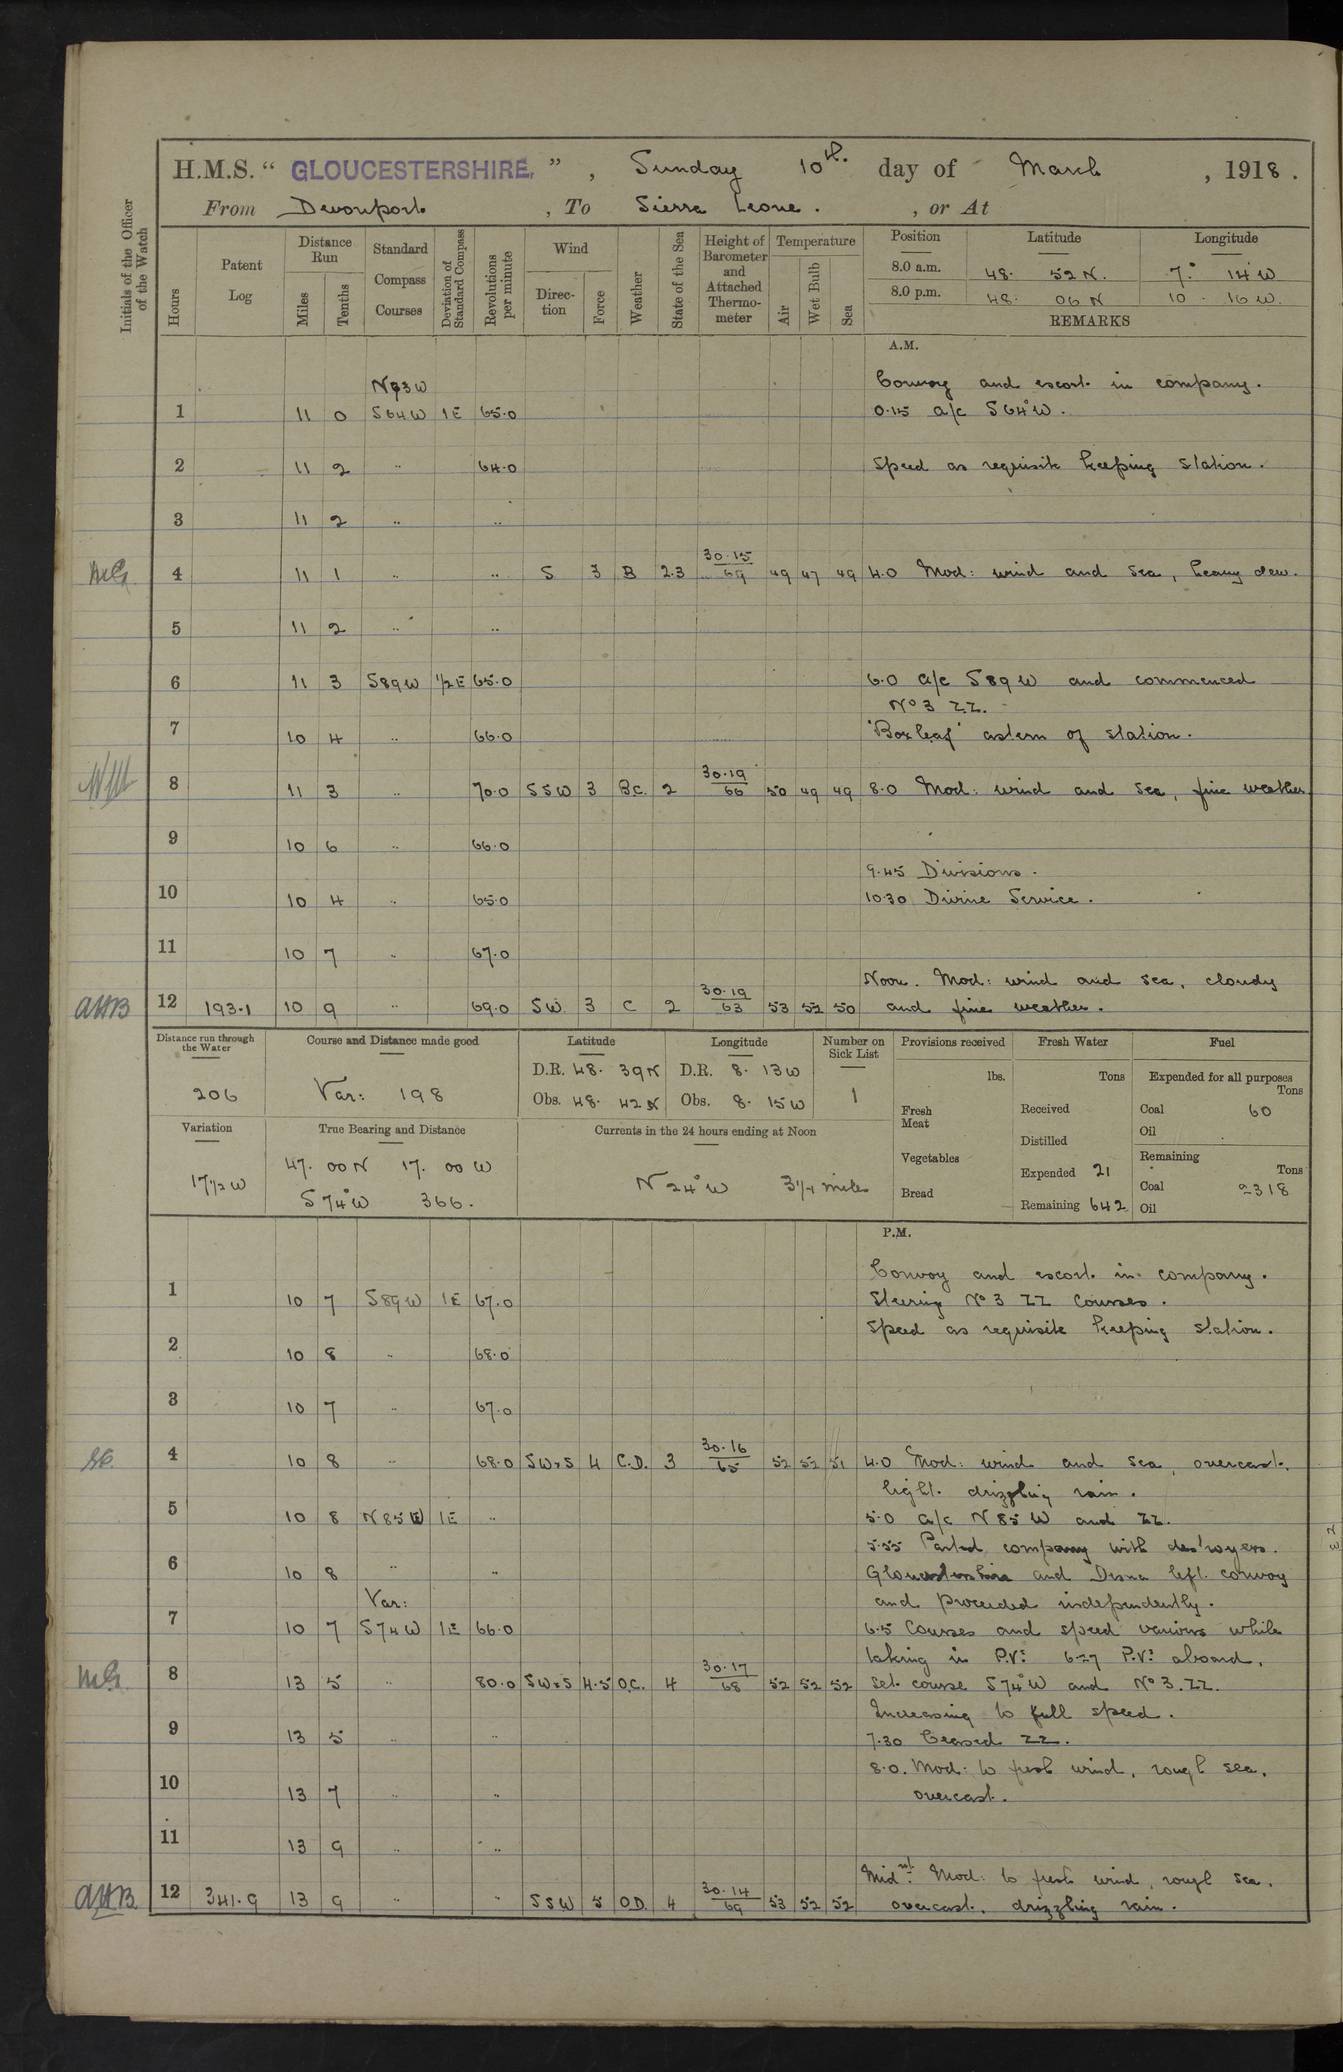 H.M.S. " GLOUCESTERSHIRE. ", Sunday 10th. day of March , 1918.
From Devonport , To Sierra Leone. , or At
Initials of the Officer of the Watch
Hours
Patent Log
Distance Run
Miles
Tenths
Standard Compass Courses
Deviation of Standard Compass
Revolutions per minute
Wind
Direction
Force
Weather
State of the Sea
Height of Barometer and Attached Thermometer
Temperature
Air
Wet Bulb
Sea
Position Latitude Longitude
8.0 a.m. 48. 52 N. 7.° 14' W
8.0 p.m. 48. 06 N 10. 16 W.
REMARKS
A.M.
N83W Convoy and escort in company.
1 11 0 S64W 1E 65.0 0.15 a/c S64°W.
2 11 2 " 64.0 Speed as requisite keeping station.
3 11 2 " "
4 11 1 " " S 3 B 2.3 30.15/69 49 47 49 4.0 Mod: wind and sea, heavy dew.
5 11 2 " "
6 11 3 S89W 1/2E 65.0 6.0 a/c S89W and commenced
No 3 ZZ.
7 10 4 " 66.0 'Boxleaf' astern of station.
8 11 3 " 70.0 SSW 3 B.C. 2 30.19/66 50 49 49 8.0 Mod: wind and sea, fine weather
9 10 6 " 66.0
9.45 Divisions.
10 10 4 " 65.0 10.30 Divine Service.
11 10 7 " 67.0
Noon. Mod: wind and sea, cloudy
AHB 12 193.1 10 9 " 69.0 SW. 3 C 2 30.19/63 53 52 50 and fine weather.
Distance run through the Water
206
Course and Distance made good
Var: 198
Latitude
D.R. 48. 39N
Obs. 48. 42N
Longitude
D.R. 8. 13W
Obs. 8. 15W
Number on Sick List
1
Provisions received
lbs.
Fresh Meat
Vegetables
Bread
Fresh Water
Tons
Received
Distilled
Expended 21
Remaining 642
Fuel
Expended for all purposes
Tons
Coal 60
Oil
Remaining
Tons
Coal 2318
Oil
Variation
17 1/2 W
True Bearing and Distance
47. 00 N 17. 00 W
S 74°W 366.
Currents in the 24 hours ending at Noon
N 24°W 3 1/4 miles
P.M.
Convoy and escort in company.
1 10 7 S89W 1E 67.0 Steering No 3 ZZ Courses.
Speed as requisite keeping station.
2 10 8 " 68.0
3 10 7 " 67.0
4 10 8 " 68.0 SW×S 4 C.D. 3 30.16/65 52 52 51 4.0 Mod: wind and sea, overcast,
light drizzling rain.
5 10 8 N85W 1E " 5.0 a/c N85W and ZZ.
5.55 Parted company with destroyers.
6 10 8 " " Gloucestershire and Orsova left convoy
Var: and proceeded independently.
7 10 7 S74W 1E 66.0 6.5 Courses and speed various while
taking in P.Vs. 6.27 P.Vs. aboard,
8 13 5 " 80.0 SW×S 4.5 O.C. 4 30.17/68 52 52 52 Set course S74°W and No 3. ZZ.
Increasing to full speed.
9 13 5 " " 7.30 Ceased ZZ.
8.0. Mod: to fresh wind, rough sea,
10 13 7 " " overcast.
11 13 9 " "
Midnt. Mod: to fresh wind, rough sea,
AHB. 12 341.9 13 9 " " SSW 5 O.D. 4 30.14/69 53 52 52 overcast, drizzling rain.